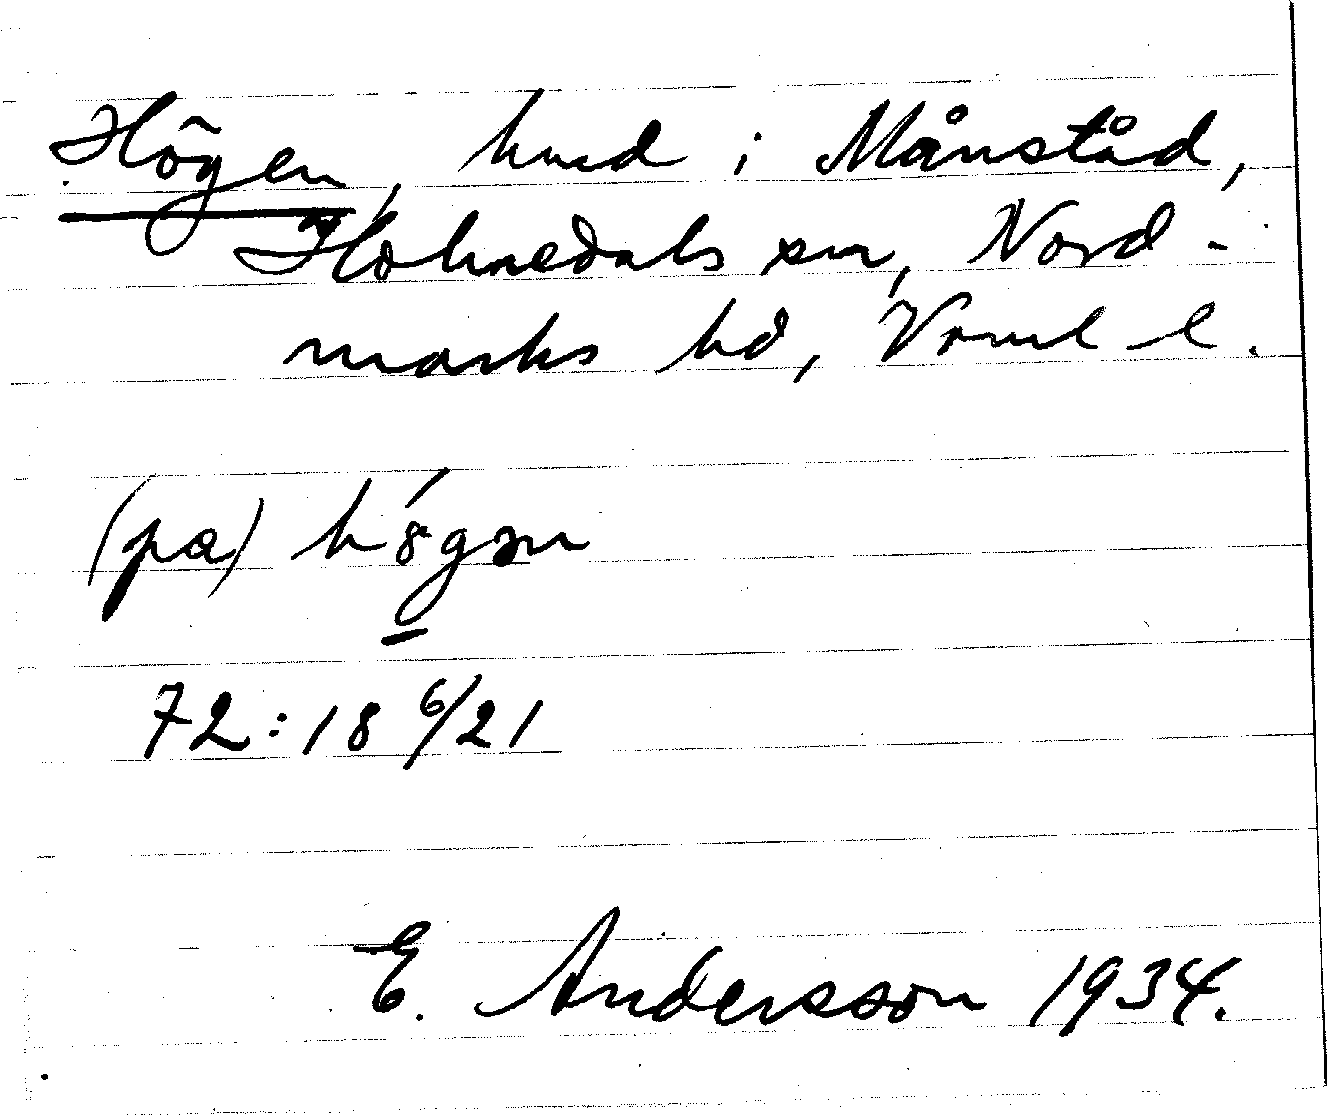 Högen, hmd i Månståd,
Holmedals sn, Nord-
marks hd, Vrml l.
(pa) högən
72:18 6/21
E. Andersson 1934.